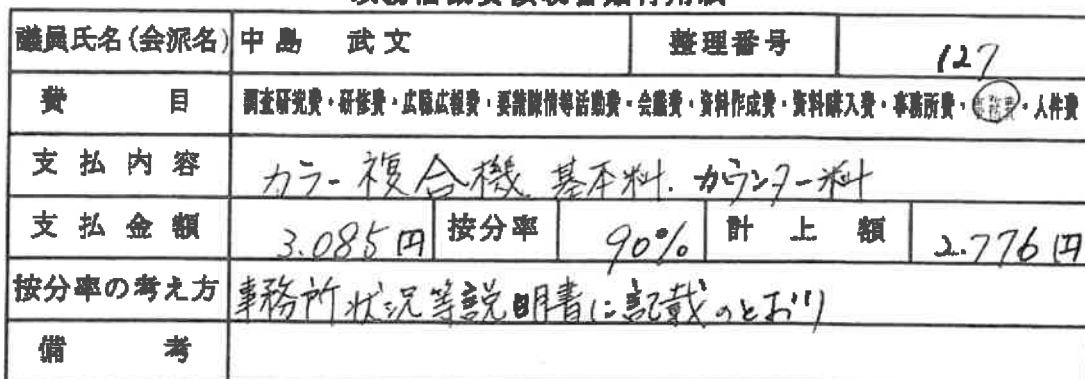 議員氏名(会派名) 中島 武文 整理番号 127
費目 調査研究費・研修費・広聴広報費・要請陳情等活動費・会議費・資料作成費・資料購入費・事務所費・事務費・人件費
支払内容 カラー複合機 基本料.カウンター料
支払金額 3.085円 按分率 90% 計上額 2.776円
按分率の考え方 事務所状況等説明書に記載のとおり
備考